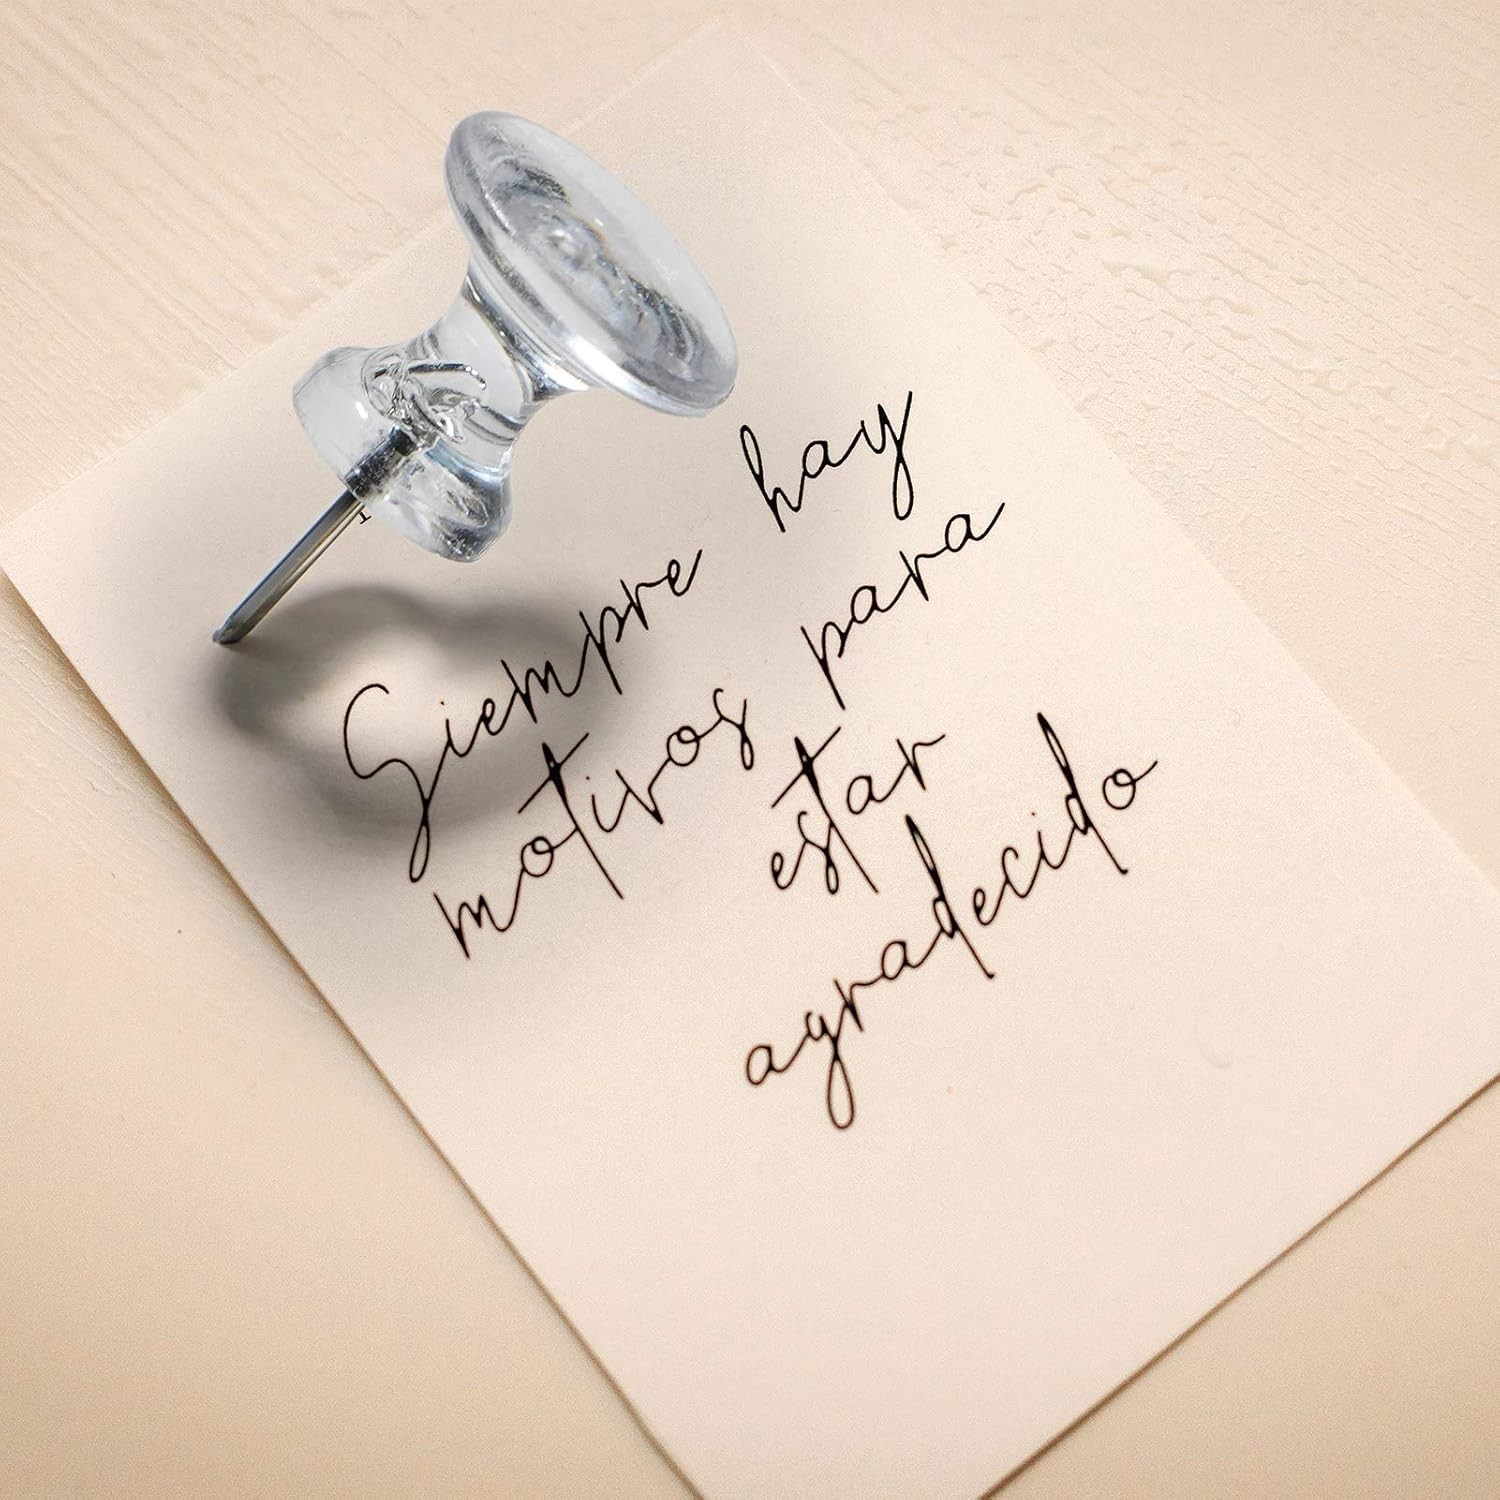 Siempre hay
motivos para
estar
agradecido